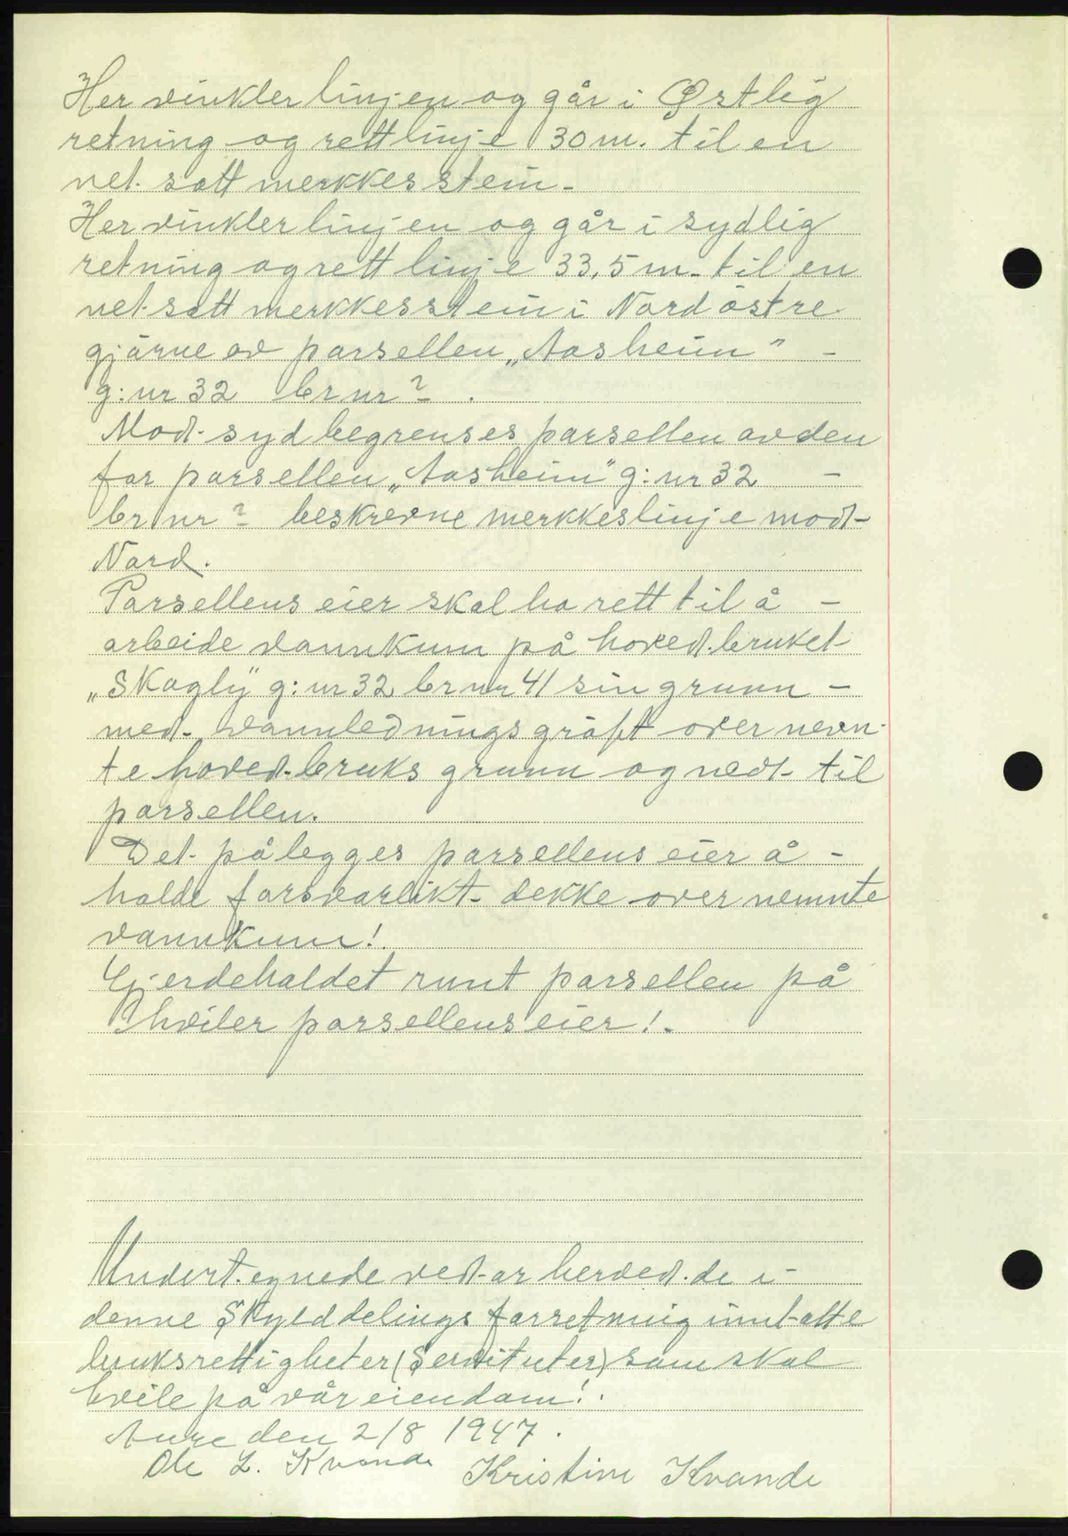 Her vinkler linjen og går i Østlig
retning og rett linje 30 m. til en
net satt merkkesstein -
Her vinkler linjen og går i sydlig
retning og rett linje 33,5 m - til en
net satt merkkesstein i Nordöstre
gjärne av parsellen „Aasheim" -
g: nr 32 br nr ? .
Mod syd begrenses parsellen av den
for parsellen „Aasheim" g: nr 32 -
br nr ? beskrevne merkkeslinje mod -
Nord.
Parsellens eier skal ha rett til å -
arbeide vannkum på hovedbruket
„Skogly" g: nr 32 br nr 41 sin grunn -
med vannledningsgröft over nevn-
te hovedbruks grunn og ned til
parsellen.
Det pålegges parsellens eier å -
holde forsvarlikt dekke over nemnte
vannkum!
Gjerdeholdet runt parsellen på
hviler parsellens eier! -
Undertegnede vedtar herved de i -
denne Skylddelings forretning inntatte
bruksrettigheter (Servituter) som skal
hvile på vår eiendom! .
Aure den 2/8 1947 .
Ole L. Kvande Kristine Kvande